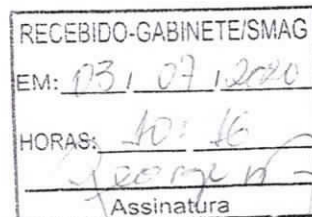 RECEBIDO-GABINETE/SMAG
EM: 03/07/2020
HORAS: 10:16
George
Assinatura